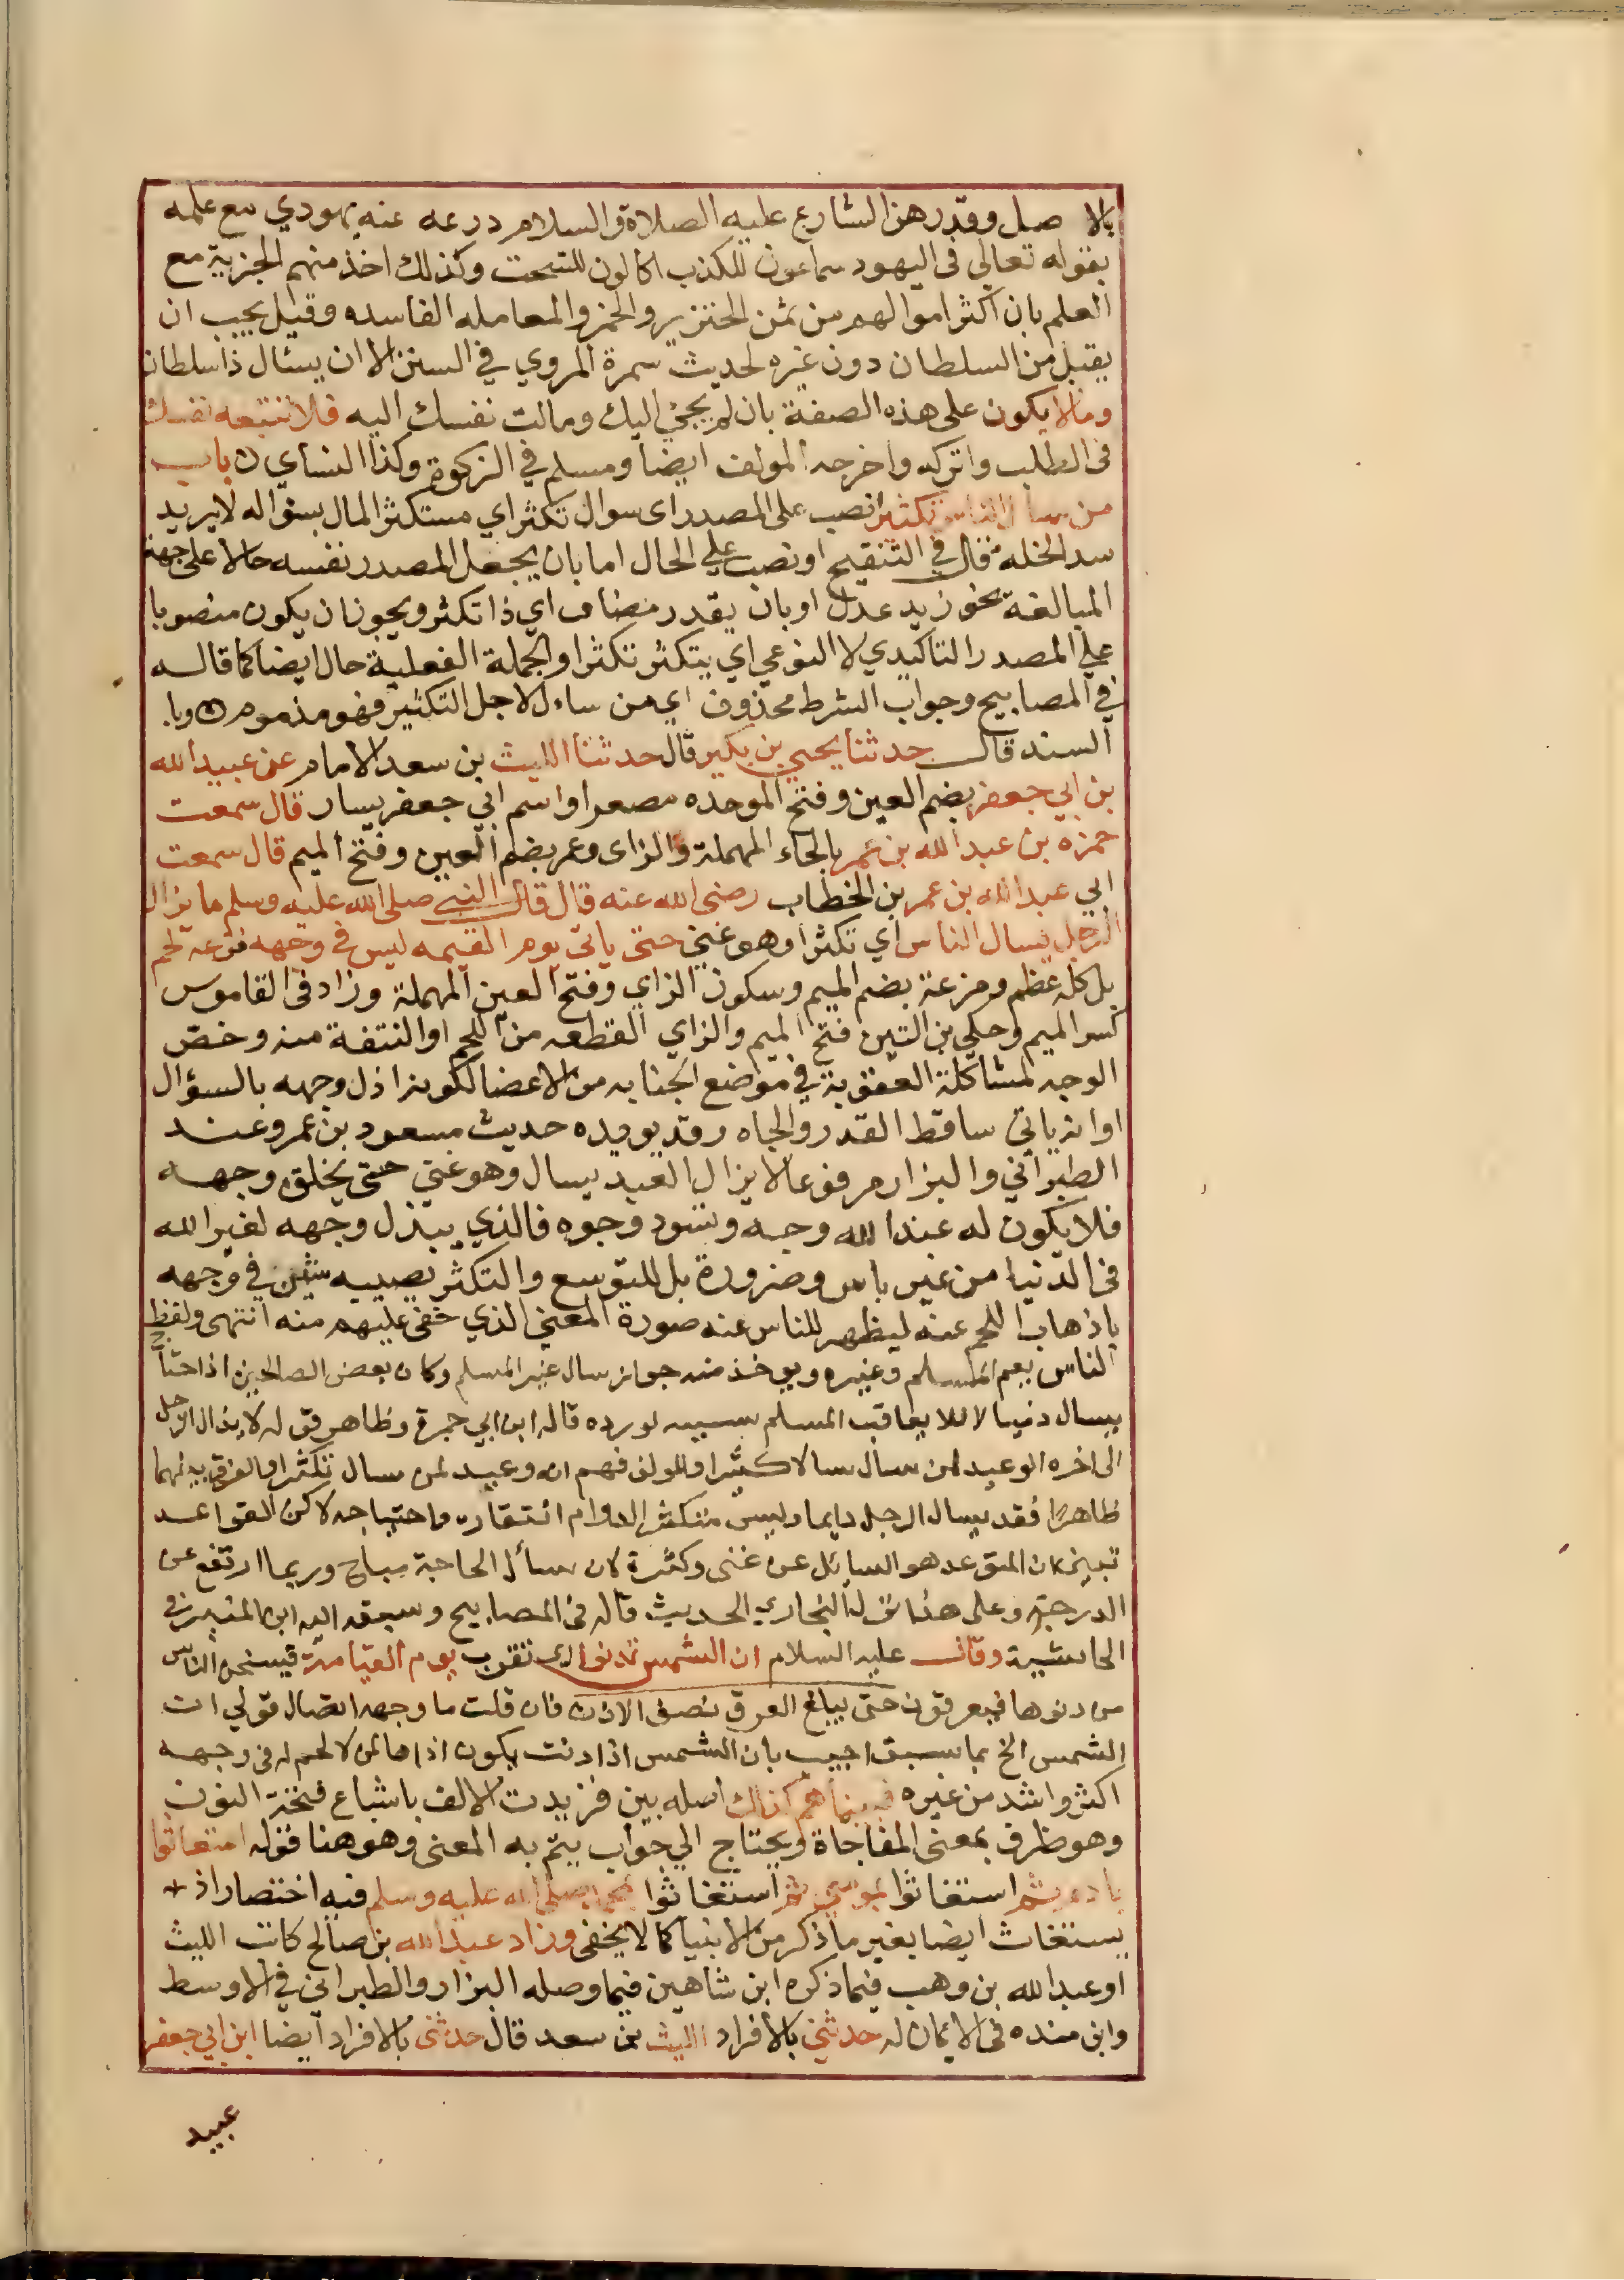 بالا صل وقد رهن الشارع عليه الصلاة والسلام درعه عنه يهودي مع علمه
بقوله تعالي في اليهود سماعون للكذب اكالون للسحت وكذلك اخذ منهم الجزية مع
العلم بان اكثر اموالهم من ثمن الخنزير والخمر والمعامله الفاسده وقيل يجب ان
يقبل من السلطان دون غيره لحديث سمرة المروي في السنن الا ان يسئال ذا سلطان
ومالا يكون على هذه الصفة بان لم يجئ اليك ومالت نفسك اليه فلا تتبعه نفسك
في الطلب واتركه واخرجه المولف ايضا ومسلم في الزكوة وكذا النساي ن باب
من سأل الناس تكثيرا نصب على المصدر اى سوال تكثر اي مستكثر المال بسواله لا يريد
سد الخلة قال في التنقيح او نصب علي الحال اما بان يجعل المصدر نفسه حالا على جهة
المبالغة نحو زيد عدل او بان يقدر مضاف اي ذا تكثر ويجوز ان يكون منصوبا
علي المصدر التاكيدي لا النوعي اي يتكثر تكثرا والجملة الفعلية حال ايضا كما قاله
في المصابيح وجواب الشرط محذوف اي من ساءل لاجل التكثير فهو مذموم ۞ وبا
السند قال حدثنا يحيي بن بكير قال حدثنا الليث بن سعد الامام عن عبيد الله
بن ابي جعفر بضم العين وفتح الموحده مصعرا واسم ابي جعفر يسار قال سمعت
حمزه بن عبد الله بن عمر بالحاء المهملة والزاى وعمر بضم العين وفتح الميم قال سمعت
ابي عبد الله بن عمر بن الخطاب رضى الله عنه قال قال النبي صلى الله عليه وسلم ما يزال
الرجل يسال الناس اي تكثرا وهو غني حتى ياتى يوم القيمه ليس في وجهه مزعه لحم
بل كله عظم ومزعة بضم الميم وسكون الزاي وفتح العين المهملة وزاد في القاموس
كسر الميم وحكي بن التين فتح الميم والزاي القطعه من اللحم او النتفة منه وخصّ
الوجه لمشاكلة العقوبة في مواضع الجنايه من الاعضا لكونه اذل وجهه بالسؤال
او انه ياتي ساقط القدر والجاه وقد يويده حديث مسعود بن عمرو عند
الطبراني والبزار مرفوعا لا يزال العبد يسال وهو غنى حتى يخلق وجهه
فلا يكون له عند الله وجه وتسود وجوه فالذي يبذل وجهه لغير الله
في الدنيا من غير باس وضرورة بل للتوسع والتكثر يصيبه شين في وجهه
باذهاب اللحم عنه ليظهر للناس عنه صورة المعنى الذي خفى عليهم منه انتهى ولفظ
الناس يعم المسلم وغيره ويوخذ منه جواز سال غير المسلم وكان بعض الصالحين اذا احتاج
يسال دنيا لا لئلا يعاقب المسلم بسببه لو رده قاله ابن ابي جمرة وظاهر قوله لا يزال الرجل
الى اخره الوعيد لمن سال سالا كثيرا والمولف فهم انه وعيد لمن سال تكثرا والفرق بينهما
ظاهر فقد يسال الرجل دايما وليس متكثرا لدوام افتقاره واحتياجه لاكن القواعد
تبين ان المتوعد هو السايل عن غنى وكثرة لان سأل الحاجة مباح وربما ارتفع عن
الدرجة وعلى هذا نزل البخاري الحديث قاله في المصابيح وسبقه اليه ابن المنير في
الحاشية وقال عليه السلام ان الشمس تدنو اى تقرب يوم القيامة فيسخن الناس
من دنوها فيعرقون حتى يبلغ العرق نصف الاذن فان قلت ما وجه اتصال قولي ان
الشمس الخ بما سبق اجيب بان الشمس اذا دنت يكون اذاها لمن لا لحم له في وجهه
اكثر واشد من غيره فبينما هم كذلك اصله بين فزيدت الالف باشباع فتحة النون
وهو ظرف بمعنى المفاجاة ويحتاج الي جواب يتم به المعنى وهو هنا قوله استغاثوا
بادم ثم استغاثوا بموسى ثم استغاثوا بمحمد صلى الله عليه وسلم فيه اختصار اذ
يستغاث ايضا بغير ما ذكر من الانبيا كما لا يخفى وزاد عبد الله بن صالح كاتب الليث
او عبد الله بن وهب فيما ذكره ابن شاهين فيما وصله البزار والطبراني في الاوسط
وابن منده في الايمان له حدثني بالافراد الليث بن سعد قال حدثنى بالافراد ايضا ابن ابي جعفر
عبيد